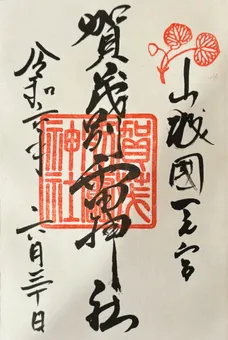 山城國一之宮
賀茂別雷神社
令和元年 六月三十日
賀茂別雷神社